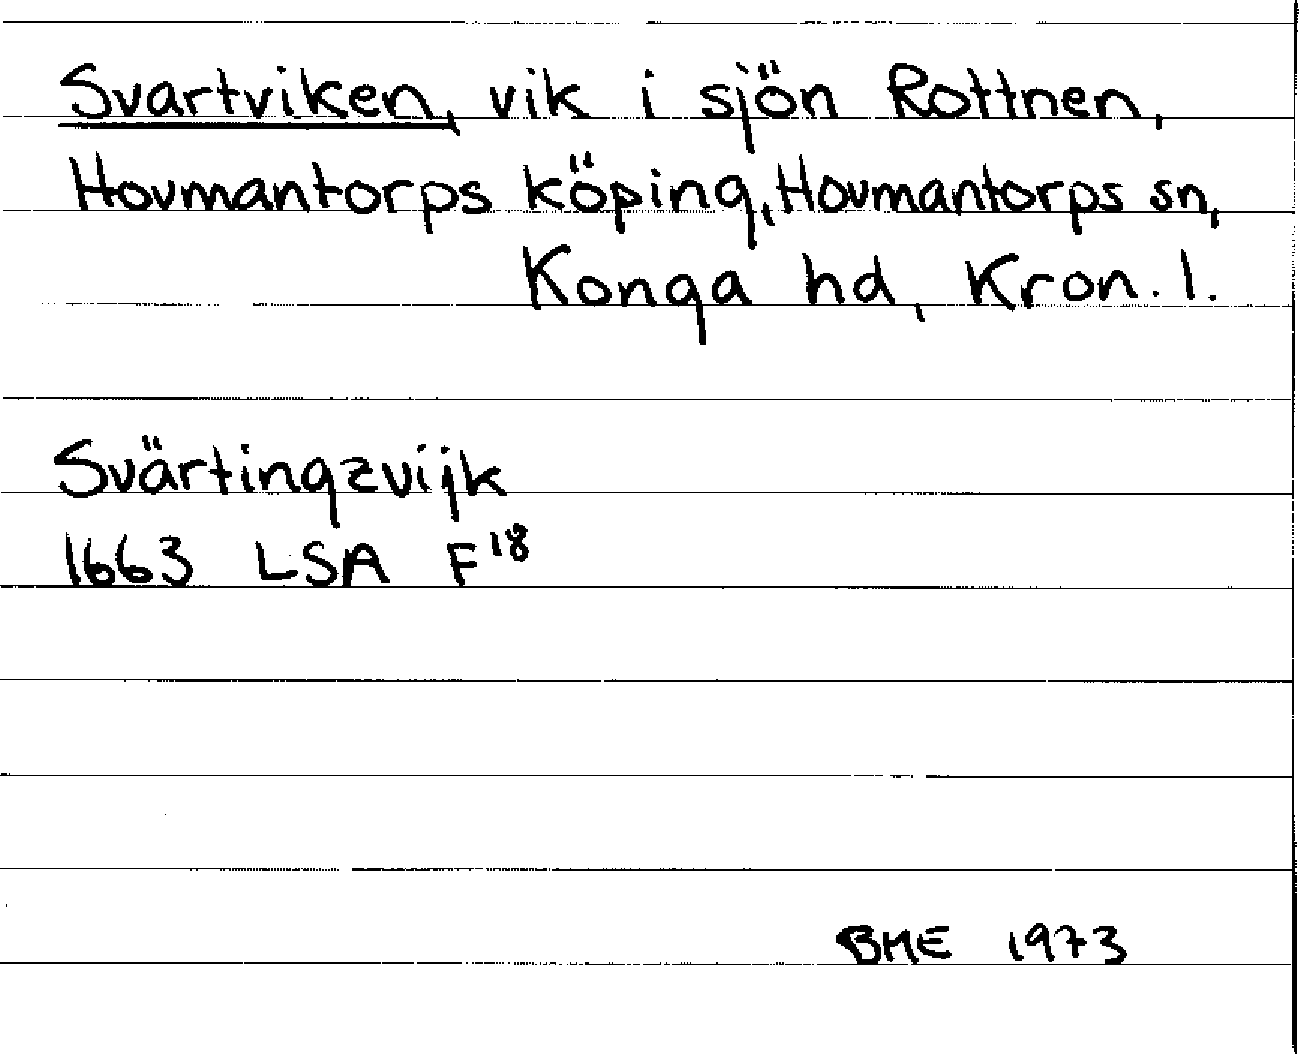 Svartviken, vik i sjön Rottnen,
Hovmantorps köping, Hovmantorps sn,
Konga hd, Kron. l.
Svärtingzvijk
1663 LSA F¹⁸
BME 1973